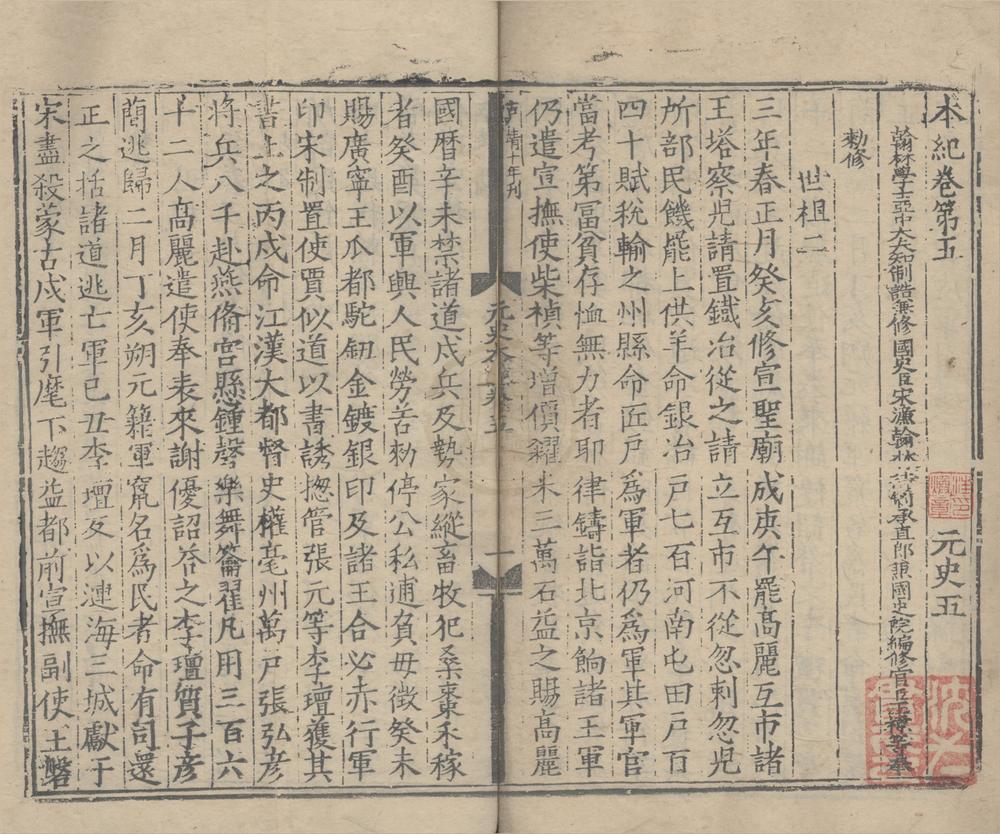 本紀卷第五　元史五
翰林學士亞中大夫知制誥兼修國史臣宋濂翰林待制承直郎兼國史院編修官臣王禕等奉
勑修
世祖二
三年春正月癸亥修宣聖廟成庚午罷髙麗互市諸
王塔察児請置鐵冶從之請立互市不從忽剌忽児
所部民饑罷上供羊命銀冶戸七百河南屯田戸百
四十賦稅輸之州縣命匠戸爲軍者仍爲軍其軍官
當考第富貧存恤無力者耶律鑄詣北京餉諸王軍
仍遣宣撫使柴楨等增價糴米三萬石益之賜髙麗
靖十年刊
元史本紀卷五
一
國曆辛未禁諸道戍兵及勢家縱畜牧犯桑棗禾稼
者癸酉以軍興人民勞苦勑停公私逋負毋徵癸未
賜廣寧王瓜都駝鈕金鍍銀印及諸王合必赤行軍
印宋制置使賈似道以書誘揔管張元等李璮獲其
書上之丙戌命江漢大都督史權亳州萬戸張弘彦
將兵八千赴燕脩宫縣鍾磬樂舞籥翟凡用三百六
十二人髙麗遣使奉表來謝優詔荅之李璮質子彦
蕳逃歸二月丁亥朔元籍軍竄名爲民者命有司還
正之括諸道逃亡軍己丑李璮反以漣海三城獻于
宋盡殺蒙古戍軍引麾下趨益都前宣撫副使王磐